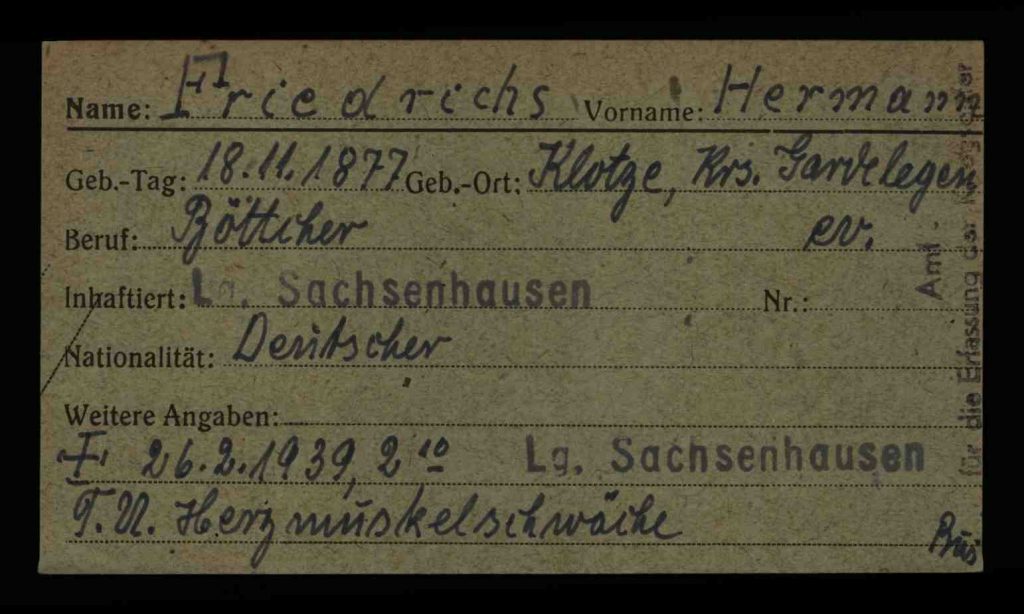 Name: Friedrichs Vorname: Hermann
Geb.-Tag: 18.11.1877 Geb.-Ort: Klotze, Krs. Gardelegen
Beruf: Böttcher ev.
Inhaftiert: Lg. Sachsenhausen Nr.:
Nationalität: Deutscher
Weitere Angaben:
† 26.2.1939, 2¹⁰ Lg. Sachsenhausen
T.U. Herzmuskelschwäche
Amt
für die Erfassung der Kriegsopfer